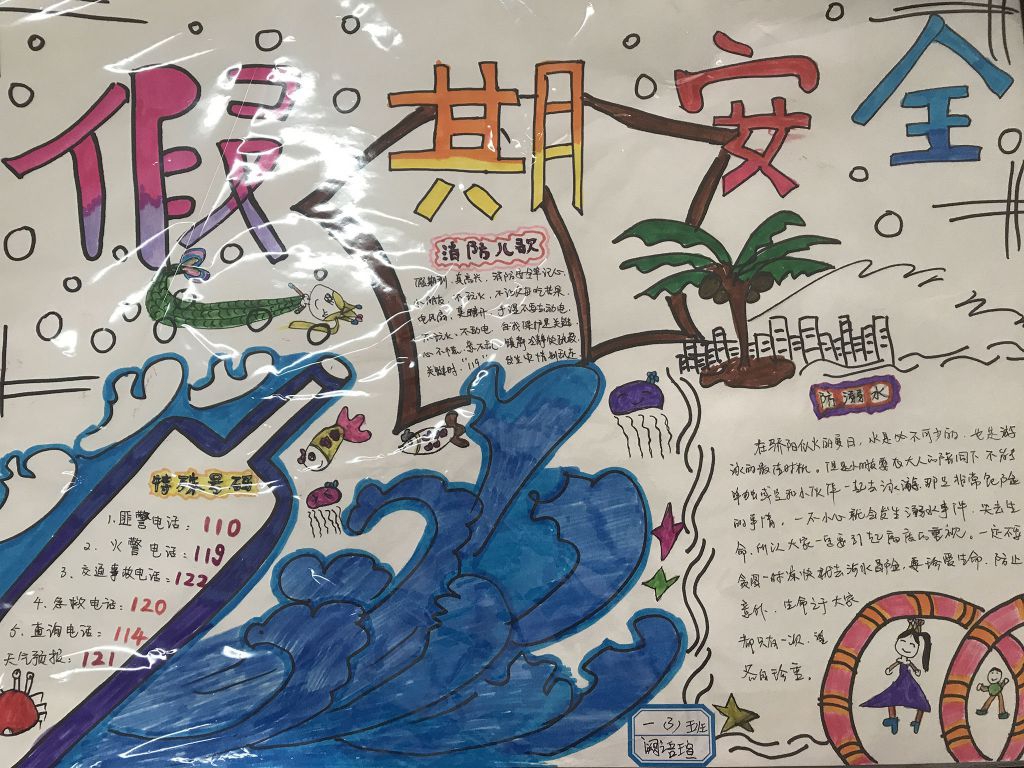 假期安全
消防儿歌
假期到,真高兴,消防安全牢记心.
小朋友,不玩火,
关键时,"119"
特殊号码
1.匪警电话:110
2.火警电话:119
3.交通事故电话:122
4.急救电话:120
5.查询电话:114
天气预报:121
防溺水
在骄阳似火的夏日,水是必不可少的.也是游
泳的最佳时机。但是小朋友要在大人的陪同下不能
单独或是和小伙伴一起去游泳.那是非常危险
的事情,一不小心就会发生溺水事件,失去生
命,所以大家一定要引起高度的重视。一定不要
贪图一时凉快就去涉水冒险.要珍爱生命,防止
意外.生命之于大家
都只有一次,望
各自珍重。
一(3)班